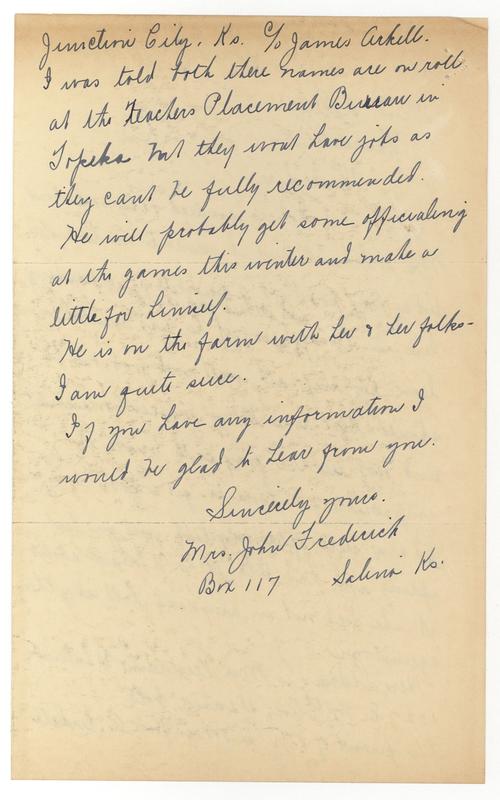 Junction City, Ks. c/o James Arkell.
I was told both there names are on roll
at the Teachers Placement Bureau in
Topeka but they wont have jobs as
they cant be fully recommended.
He will probably get some officialing
at the games this winter and make a
little for himself.
He is on the farm with her & her folks-
I am quite sure.
If you have any information I
would be glad to hear from you.
Sincerely yours.
Mrs. John Frederick
Box 117 Salina Ks.